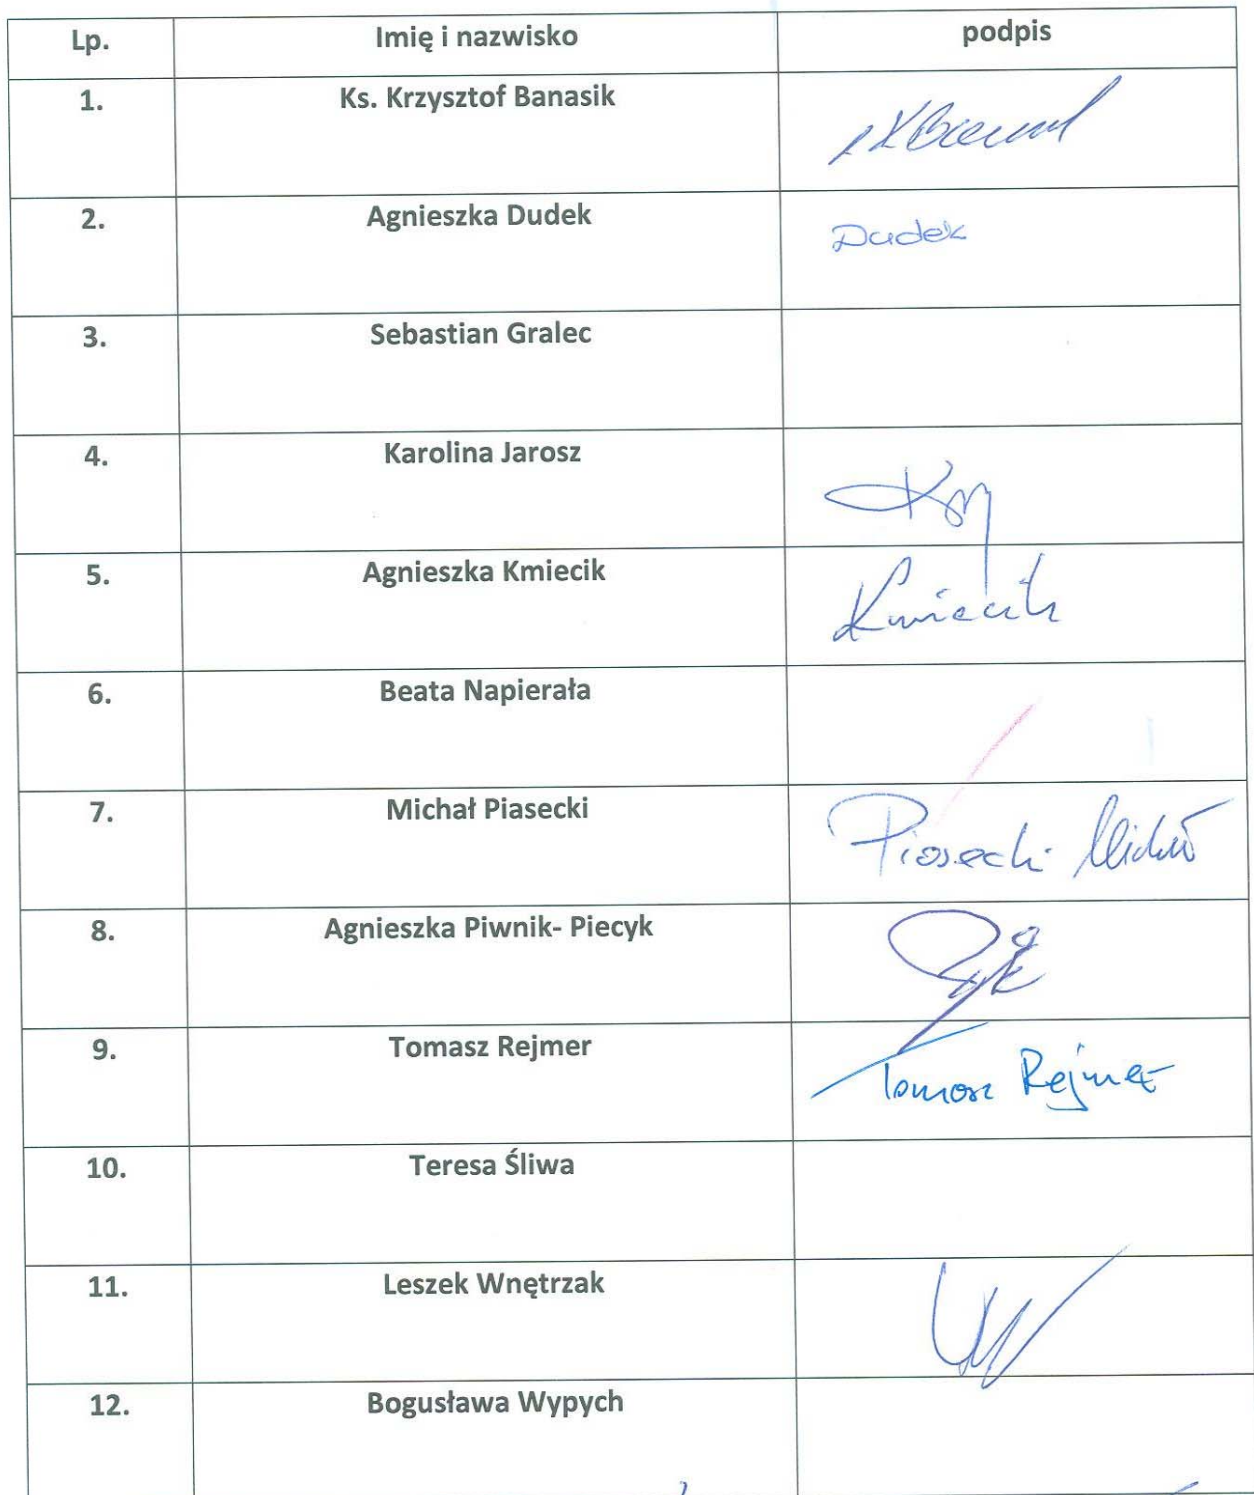 Lp. Imię i nazwisko podpis
1. Ks. Krzysztof Banasik
2. Agnieszka Dudek Dudek
3. Sebastian Gralec
4. Karolina Jarosz
5. Agnieszka Kmiecik Kmiecik
6. Beata Napierała
7. Michał Piasecki Piasecki Michał
8. Agnieszka Piwnik- Piecyk
9. Tomasz Rejmer Tomasz Rejmer
10. Teresa Śliwa
11. Leszek Wnętrzak
12. Bogusława Wypych